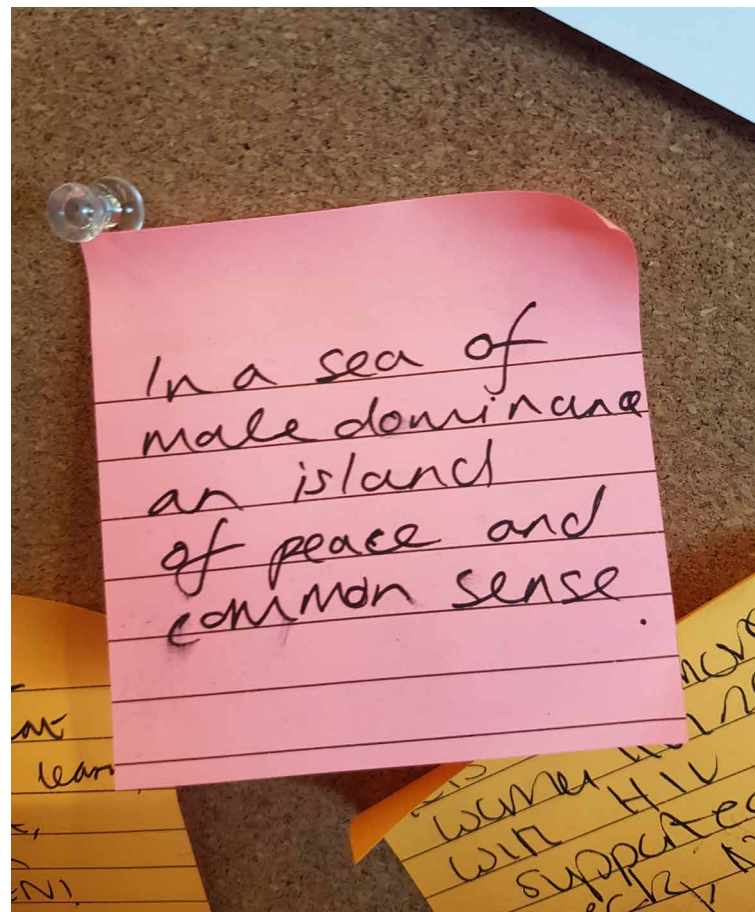 In a sea of
male dominance
an island
of peace and
common sense.
women
with HIV
supported